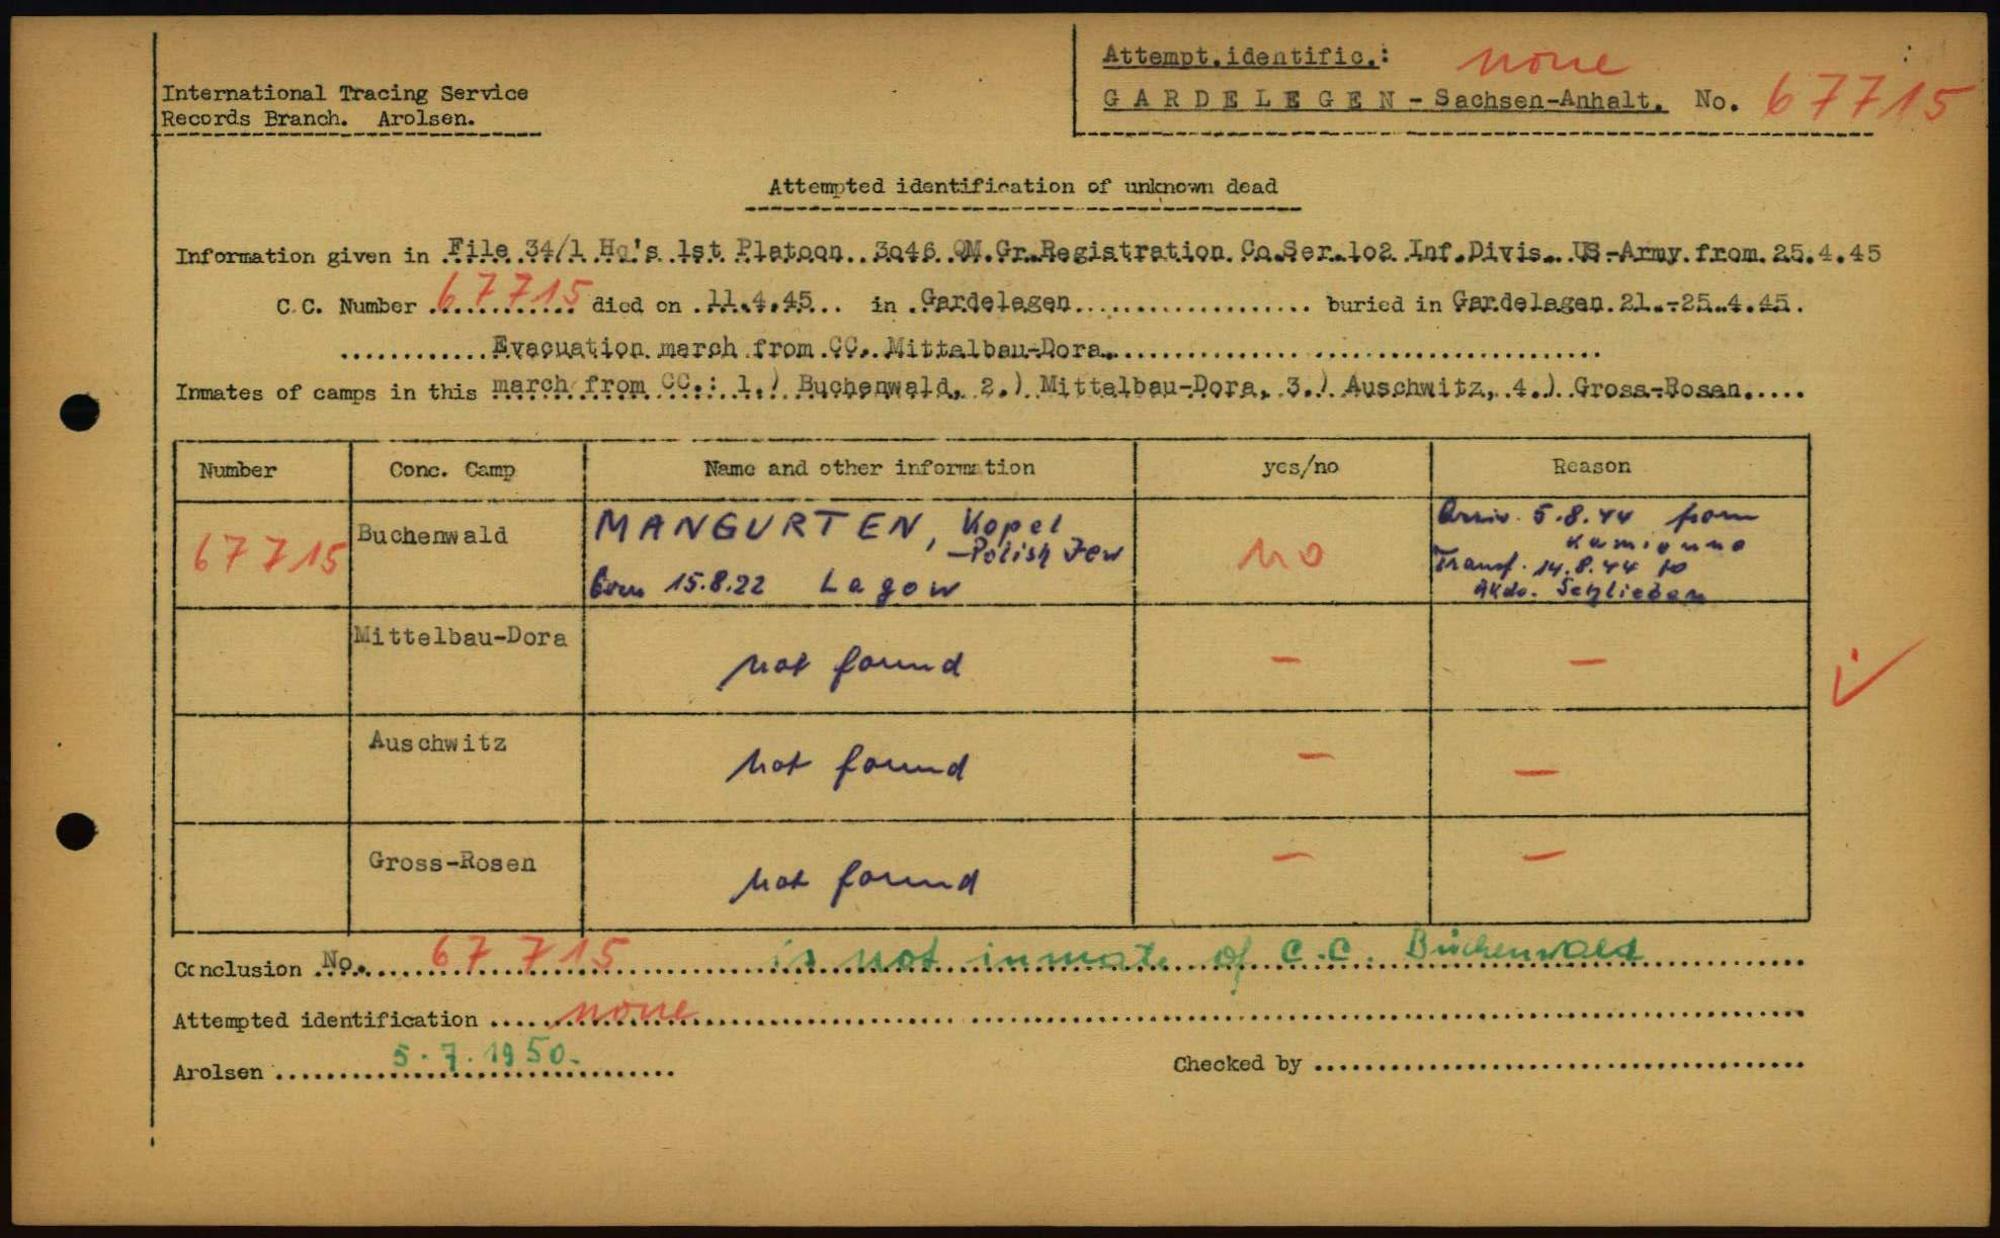 International Tracing Service
Records Branch. Arolsen.
Attempt.identific.: none
GARDELEGEN - Sachsen-Anhalt. No. 67715
Attempted identification of unknown dead
Information given in File 34/1 Hq's 1st Platoon 3o46 QM.Gr.Registration Co.Ser.1o2 Inf.Divis. US-Army from 25.4.45
C.C. Number 67715 died on 11.4.45 in Gardelegen buried in Gardelegen 21.-25.4.45.
Evacuation march from CC. Mittelbau-Dora.
Inmates of camps in this march from CC.: 1.) Buchenwald, 2.) Mittelbau-Dora, 3.) Auschwitz, 4.) Gross-Rosen.
Number Conc. Camp Name and other information yes/no Reason
67715 Buchenwald MANGURTEN, Kopel
-Polish Jew
born 15.8.22 Lagow
no
Arriv. 5.8.44 from
Kamienna
Transf. 14.8.44 to
AKdo. Schlieben
Mittelbau-Dora not found - -
Auschwitz not found - -
Gross-Rosen not found - -
Conclusion No. 67 715 is not inmate of C.C. Buchenwald
Attempted identification none
Arolsen 5.7.1950.
Checked by